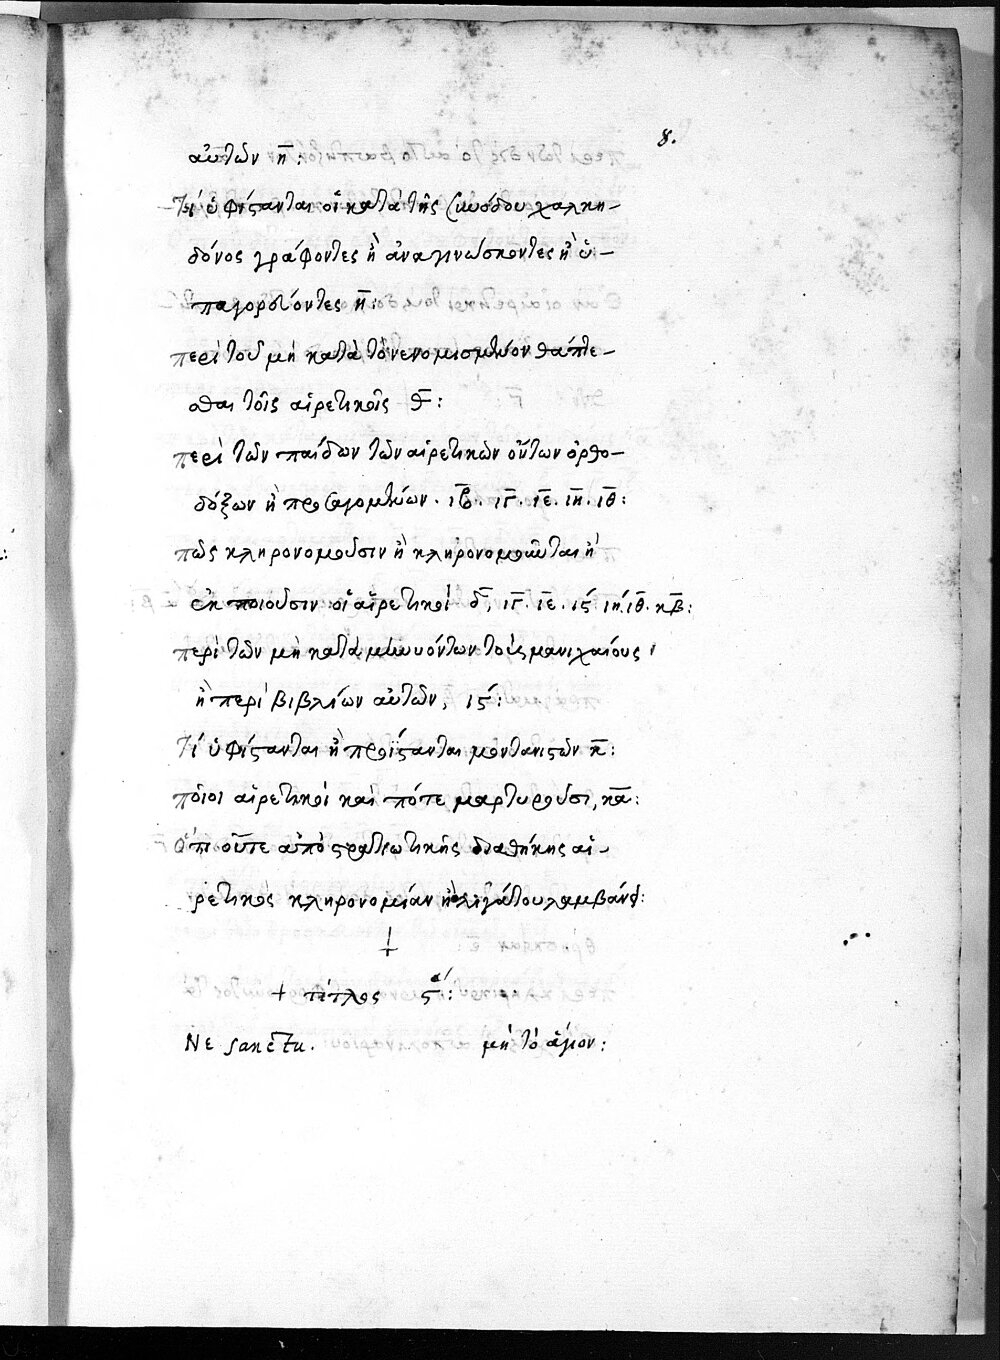 8.
αὐτῶν η̅:
Τί ὑφίστανται οἱ κατὰ τῆς συνόδου χαλκη-
δόνος γράφοντες ἢ ἀναγινώσκοντες ἢ ὑ-
παγορεύοντες η̅:
περὶ τοῦ μὴ κατὰ τὸ νενομισμένον θάπτε-
σθαι τοῖς αἱρετικοῖς θ̅:
περὶ τῶν παίδων τῶν αἱρετικῶν ὄντων ὀρθο-
δόξων ἢ προσαγομένων. ιβ̅. ιγ̅. ιε̅. ιη̅. ιθ̅:
πῶς κληρονομοῦσιν ἢ κληρονομοῦνται ἢ
ἐκποιοῦσιν οἱ αἱρετικοί δ̅, ιγ̅. ιε̅. ις ιη. ιθ̅. κβ̅:
περὶ τῶν μὴ καταμηνυόντων τοὺς μανιχαίους
ἢ περὶ βιβλίων αὐτῶν, ις:
Τί ὑφίστανται ἢ προΐστανται μοντανιστῶν κ̅:
ποῖοι αἱρετικοὶ καὶ πότε μαρτυροῦσι, κα̅:
Ὅτι οὔτε ἀπὸ στρατιωτικῆς διαθήκης αἱ-
ρετικὸς κληρονομίαν ἢ λιγάτου λαμβάνει:
+
+ τίτλος ϛ:
Ne sanctu. μὴ τὸ ἅγιον: